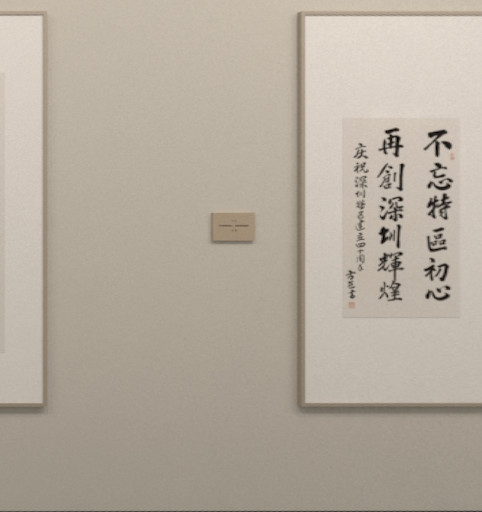 不忘特區初心
再創深圳輝煌
庆祝深圳特区建立四十周年